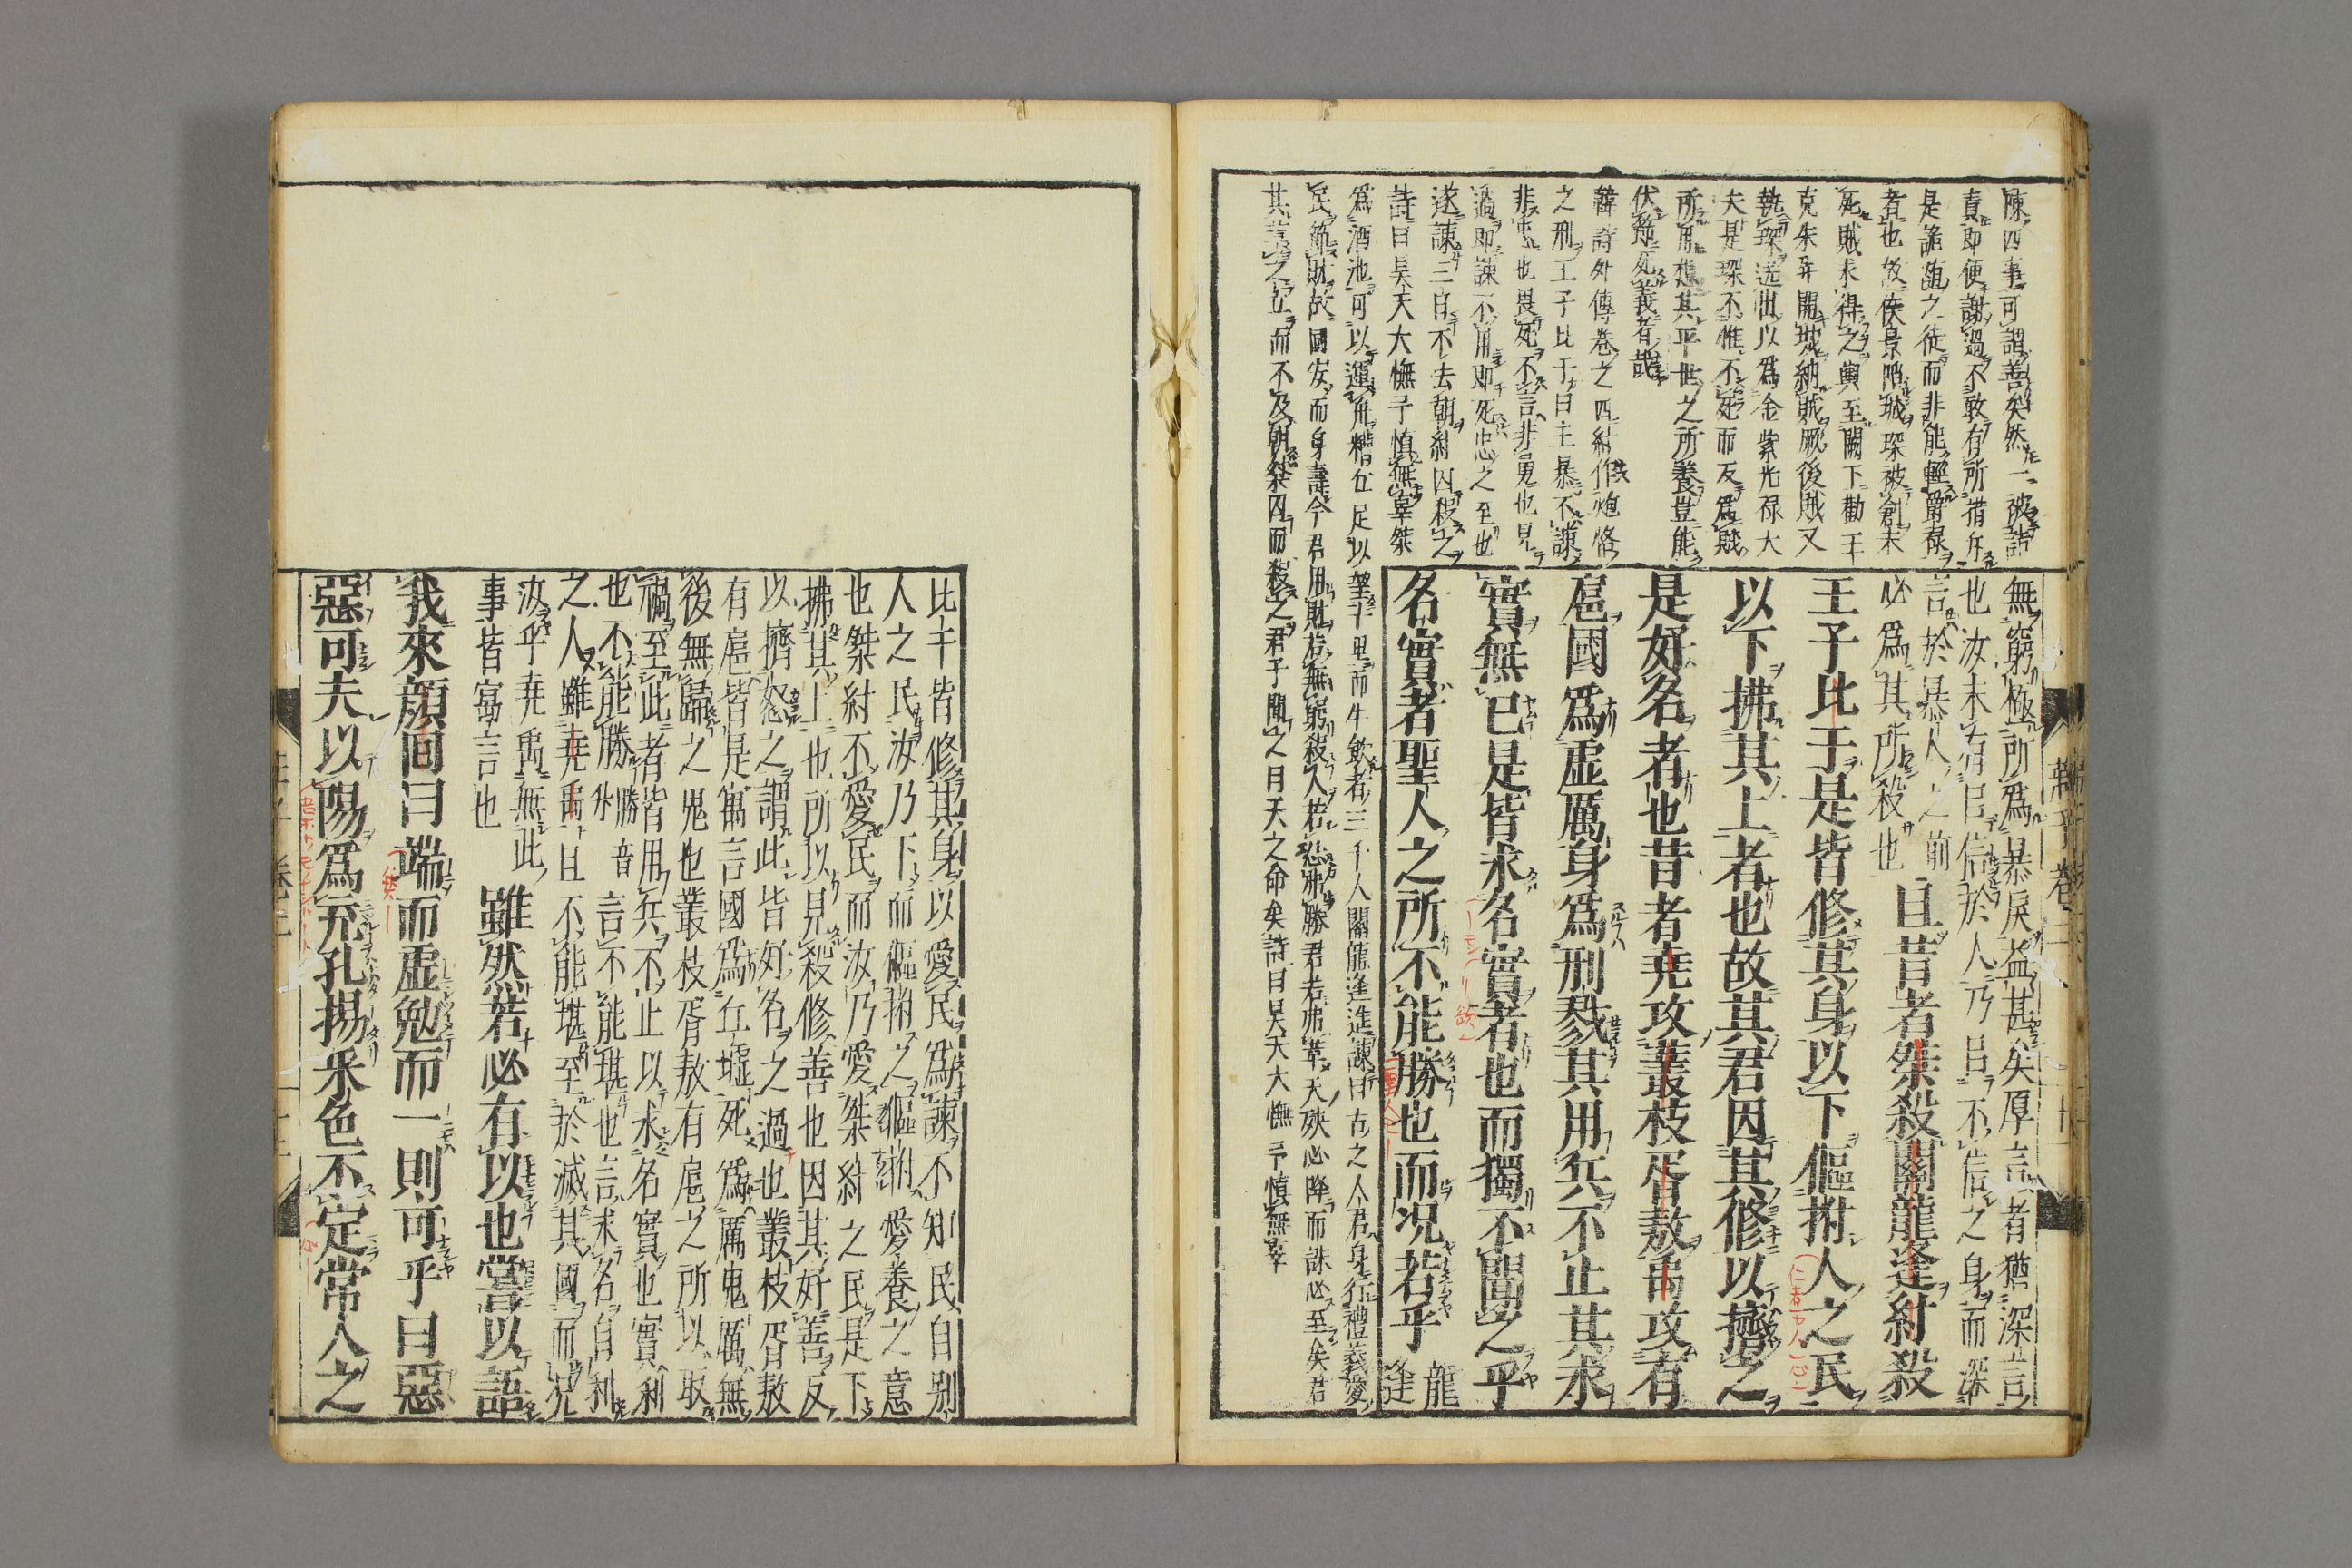 陳四事可謂善矣然一被詰
責即便謝過不敢有所指斥
是諂諛之徒而非能輕爵祿
者也故侯景陷城琛被創未
死賊求得之輿至闕下勸王
克朱异開城納賊厥後賊又
執琛送出以爲金紫光禄大
夫是琛不惟不死而反爲賊
所用想其平世之所養豈能
伏節死義者哉
韓詩外傳卷之四紂作炮烙
之刑王子比干曰主暴不諫
非忠也畏死不言非勇也見
過即諫不用即死忠之至也
遂諫三日不去朝紂囚殺之
詩曰昊天大憮予慎無辜桀
爲酒池可以運舟糟丘足以望十里而牛飲者三千人關龍逢進諫曰古之人君身行禮義愛
民節財故國安而身壽今君用財若無窮殺人若恐弗勝君若弗革天殃必降而誅必至矣君
其革之立而不及朝桀囚而殺之君子聞之曰天之命矣詩曰昊天大憮予慎無辜
無窮極所爲暴戾益甚矣厚言者猶深言
也汝未有巨信於人乃巨不信之身而深
言於暴人之前
必爲其所殺也且昔者桀殺關龍逢紂殺
王子比干是皆修其身以下傴拊人之民
以下拂其上者也故其君因其修以擠之
是好名者也昔者堯攻叢枝胥敖禹攻有
扈國爲虛厲身爲刑戮其用兵不止其求
實無已是皆求名實者也而獨不聞之乎
名實者聖人之所不能勝也而况若乎龍
逢
比干皆修其身以愛民爲諫不知民自别
人之民汝乃下而傴拊之傴拊愛養之意
也桀紂不愛民而汝乃愛桀紂之民是下
拂其上也所以見殺修善也因其好善反
以擠怒之謂此皆好名之過也叢枝胥敖
有扈皆是寓言國爲丘墟死爲厲鬼厲無
後無歸之鬼也叢枝胥敖有扈之所以取
禍至此者皆用兵不止以求名實也實利
也不能勝勝音升言不能堪也言求名自利
之人雖堯禹且不能堪至於滅其國而况
汝乎堯禹無此
事皆寓言也雖然若必有以也嘗以語
我來顔回曰端而虛勉而一則可乎曰惡
惡可夫以陽爲充孔揚釆色不定常人之